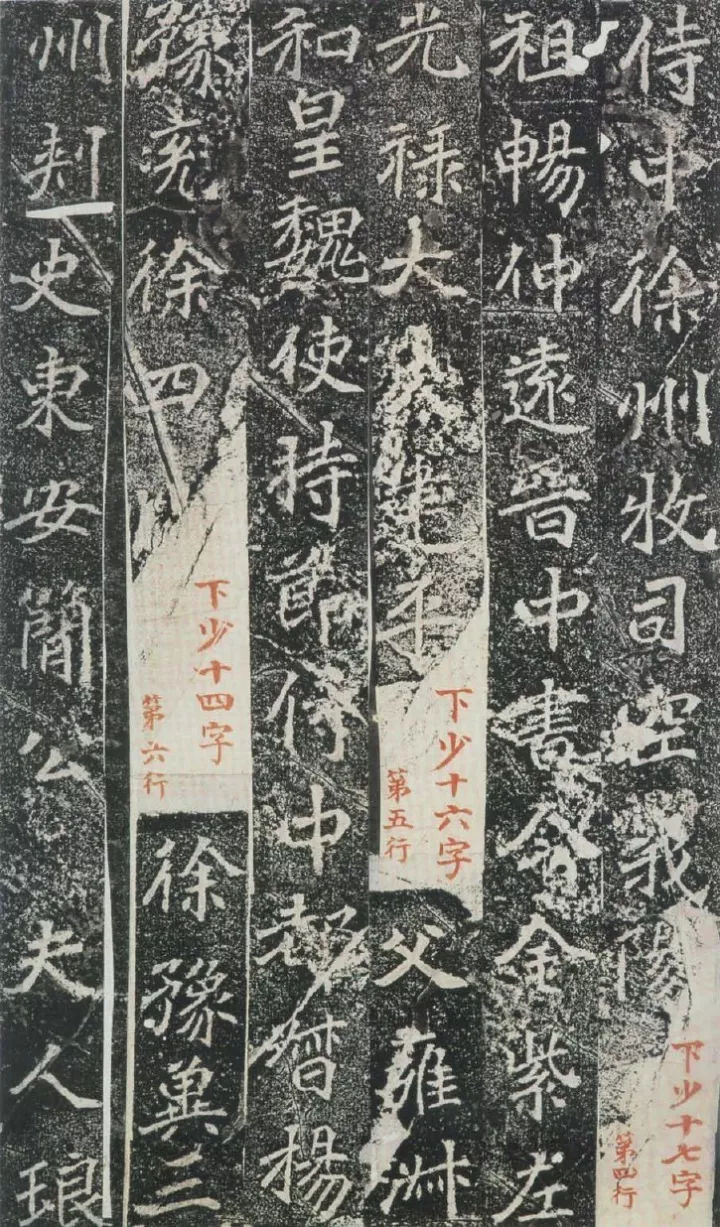 侍中徐州牧司空義陽
下少十七字
第四行
祖暢仲遠晉中書令金紫左
光祿大夫建平
下少十六字
第五行
父雍淋
和皇魏使持節侍中都督揚
豫兗徐四
下少十四字
第六行
徐豫冀三
州刾史東安簡公夫人琅